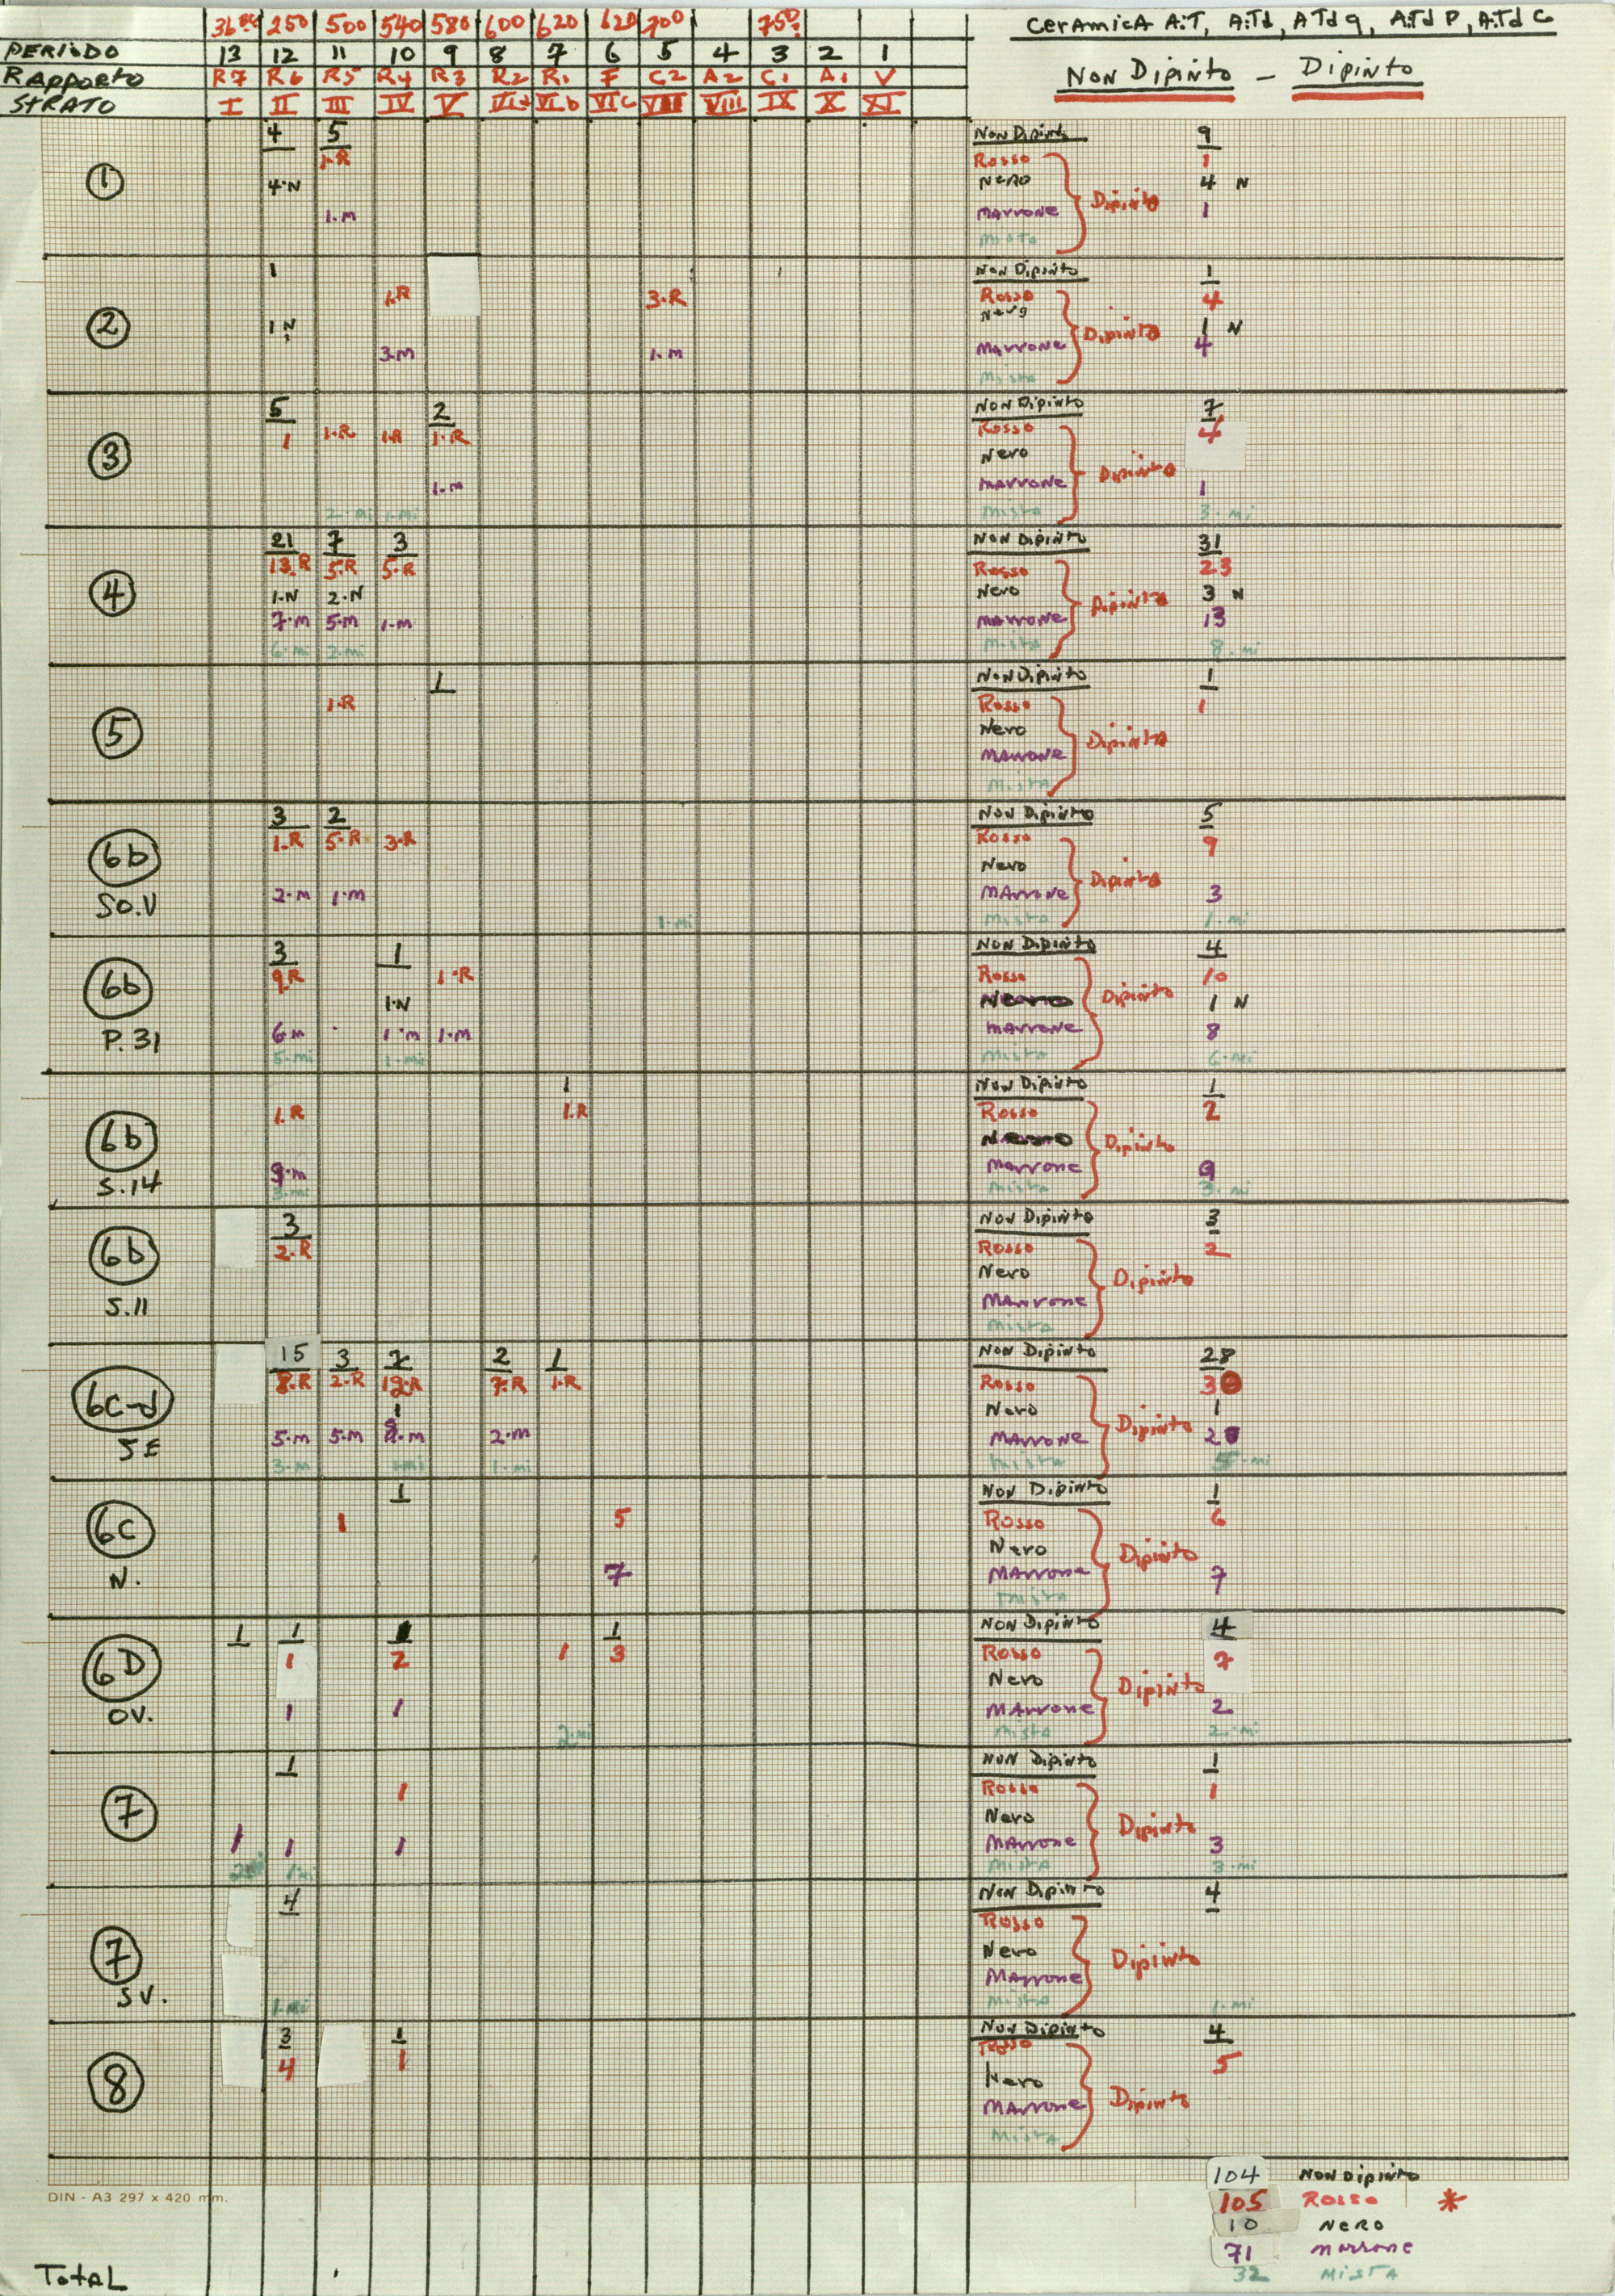 250 500 540 580 600 620 620 700 750? CERAMICA A.T, A.Td, A Td g, A.Td P, A.Td C
PERIODO 13 12 11 10 9 8 7 6 5 4 3 2 1
RAPPORTO R7 R6 R5 R4 R3 R2 R1 F C2 A2 C1 A1 V NON DIPINTO - DIPINTO
STRATO I II III IV V VI b VI c VIII IX X XI
1 4 5 NON Dipinto 9
1.R Rosso 1
4.N Nero 4 N
1.M Marrone 1
Dipinto
Mista
2 1 NON Dipinto 1
1.R 3.R Rosso 4
1 N 1 N
3.M 1.M Marrone 4
Dipinto
Mista
3 5 2 NON Dipinto 7
1 1.R 1.R 1.R Rosso 4
Nero
1.M Marrone 1
Dipinto
2.Mi 1.Mi Mista 3.Mi
4 21 7 3 NON DIPINTO 31
13.R 5.R 5.R Rosso 23
1.N 2.N Nero 3 N
7.M 5.M 1.M Marrone 13
Dipinto
6.Mi 2.Mi Mista 8.Mi
5 1 NON Dipinto 1
1.R Rosso 1
Nero
Marrone
Dipinto
Mista
6b SO.V 3 2 NON Dipinto 5
1.R 5.R 3.R Rosso 9
Nero
2.M 1.M Marrone 3
Dipinto
1.Mi Mista 1.Mi
6b P.31 3 1 NON DIPINTO 4
9.R 1.R Rosso 10
1.N 1 N
6.M 1.M 1.M Marrone 8
Dipinto
5.Mi 1.Mi Mista 6.Mi
6b S.14 1 NON DIPINTO 1
1.R 1.R Rosso 2
9.M Marrone 9
Dipinto
3.Mi Mista 3.Mi
6b S.11 3 NON Dipinto 3
2.R Rosso 2
Nero
Marrone
Dipinto
Mista
6c-d SE 15 3 2 1 NON Dipinto 28
8.R 2.R 7.R 1.R Rosso
1 Nero 1
5.M 5.M 2.M Marrone
Dipinto
3.M 1.Mi Mista 5.Mi
6C N. 1 NON DIPINTO 1
1 5 Rosso 6
Nero
7 Marrone 7
Dipinto
Mista
6D OV. 1 1 1 NON DIPINTO 4
1 2 1 3 Rosso 7
Nero
1 1 Marrone 2
Dipinto
2.Mi Mista 2.Mi
7 1 NON Dipinto 1
1 Rosso 1
Nero
1 1 1 Marrone 3
Dipinto
1.Mi Mista 3.Mi
7 SV. 4 NON Dipinto 4
Rosso
Nero
Marrone
Dipinto
1.Mi Mista 1.Mi
8 3 1 NON Dipinto 4
4 1 Rosso 5
Nero
Marrone
Dipinto
Mista
104 NON DIPINTO
DIN - A3 297 x 420 mm.
105 ROSSO *
10 NERO
71 marrone
TOTAL 32 MISTA